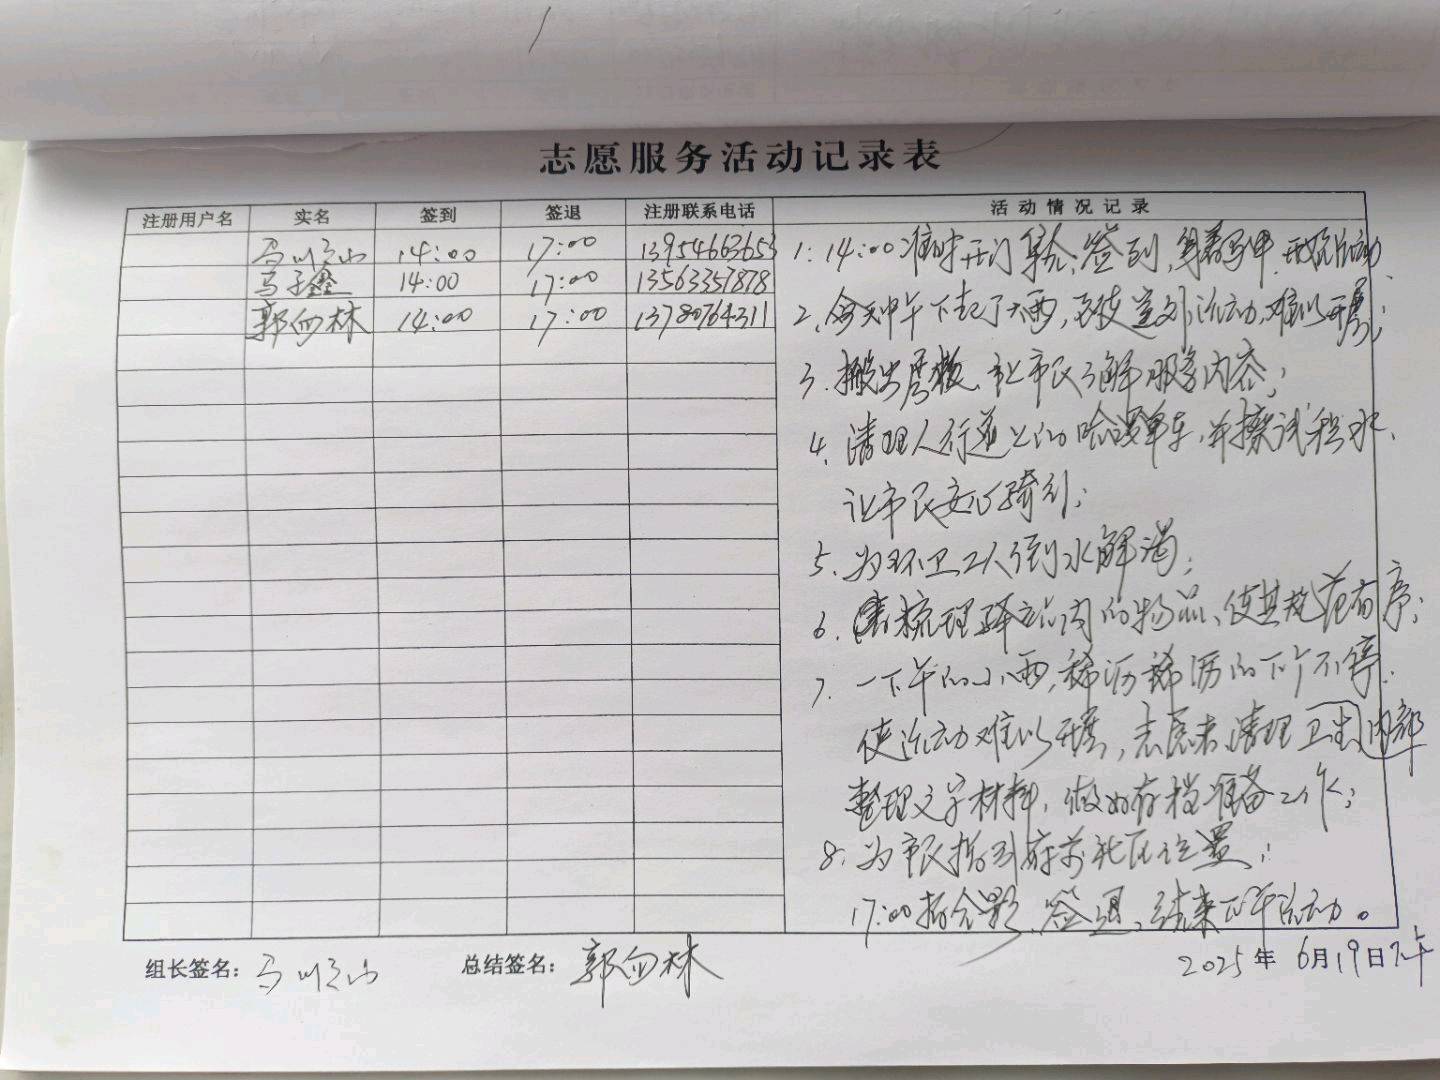 志愿服务活动记录表
注册用户名 实名 签到 签退 注册联系电话 活动情况记录
14:00 17:00 13954663653
马子鑫 14:00 17:00 13563357878
郭向林 14:00 17:00 13780764311
1. 14:00准时开门、签到,穿着马甲,开始活动.
2、今天中午下起了大雨,致使活动难以开展;
3. 搬出展板,让市民了解服务内容;
4、清理人行道上的哈啰单车,并擦试积水、
让市民安心骑行;
5、为环卫工人倒水解渴;
6、梳理驿站内的物品、使其规范有序;
7、一下午的小雨,稀沥稀沥的下个不停.
使活动难以开展,志愿者清理内部卫生
整理文字材料,做好存档准备工作;
8、为市民指引府前社区位置;
17:00拍合影、签退、结束下午活动。
组长签名: 总结签名:郭向林
2025年6月19日下午